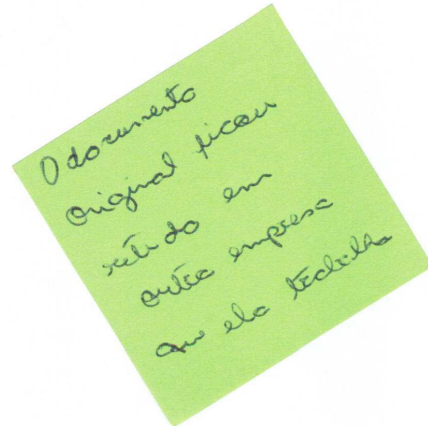 O documento
original ficou
retido em
outra empresa
que ela trabalha